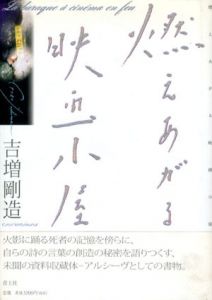 La baraque à cinéma en feu
燃えあがる
映画小屋
吉増剛造
火影に踊る死者の記憶を傍らに、
自らの詩の言葉の創造の秘密を語りつくす、
未聞の資料収蔵体=アルシーヴとしての書物。
青土社